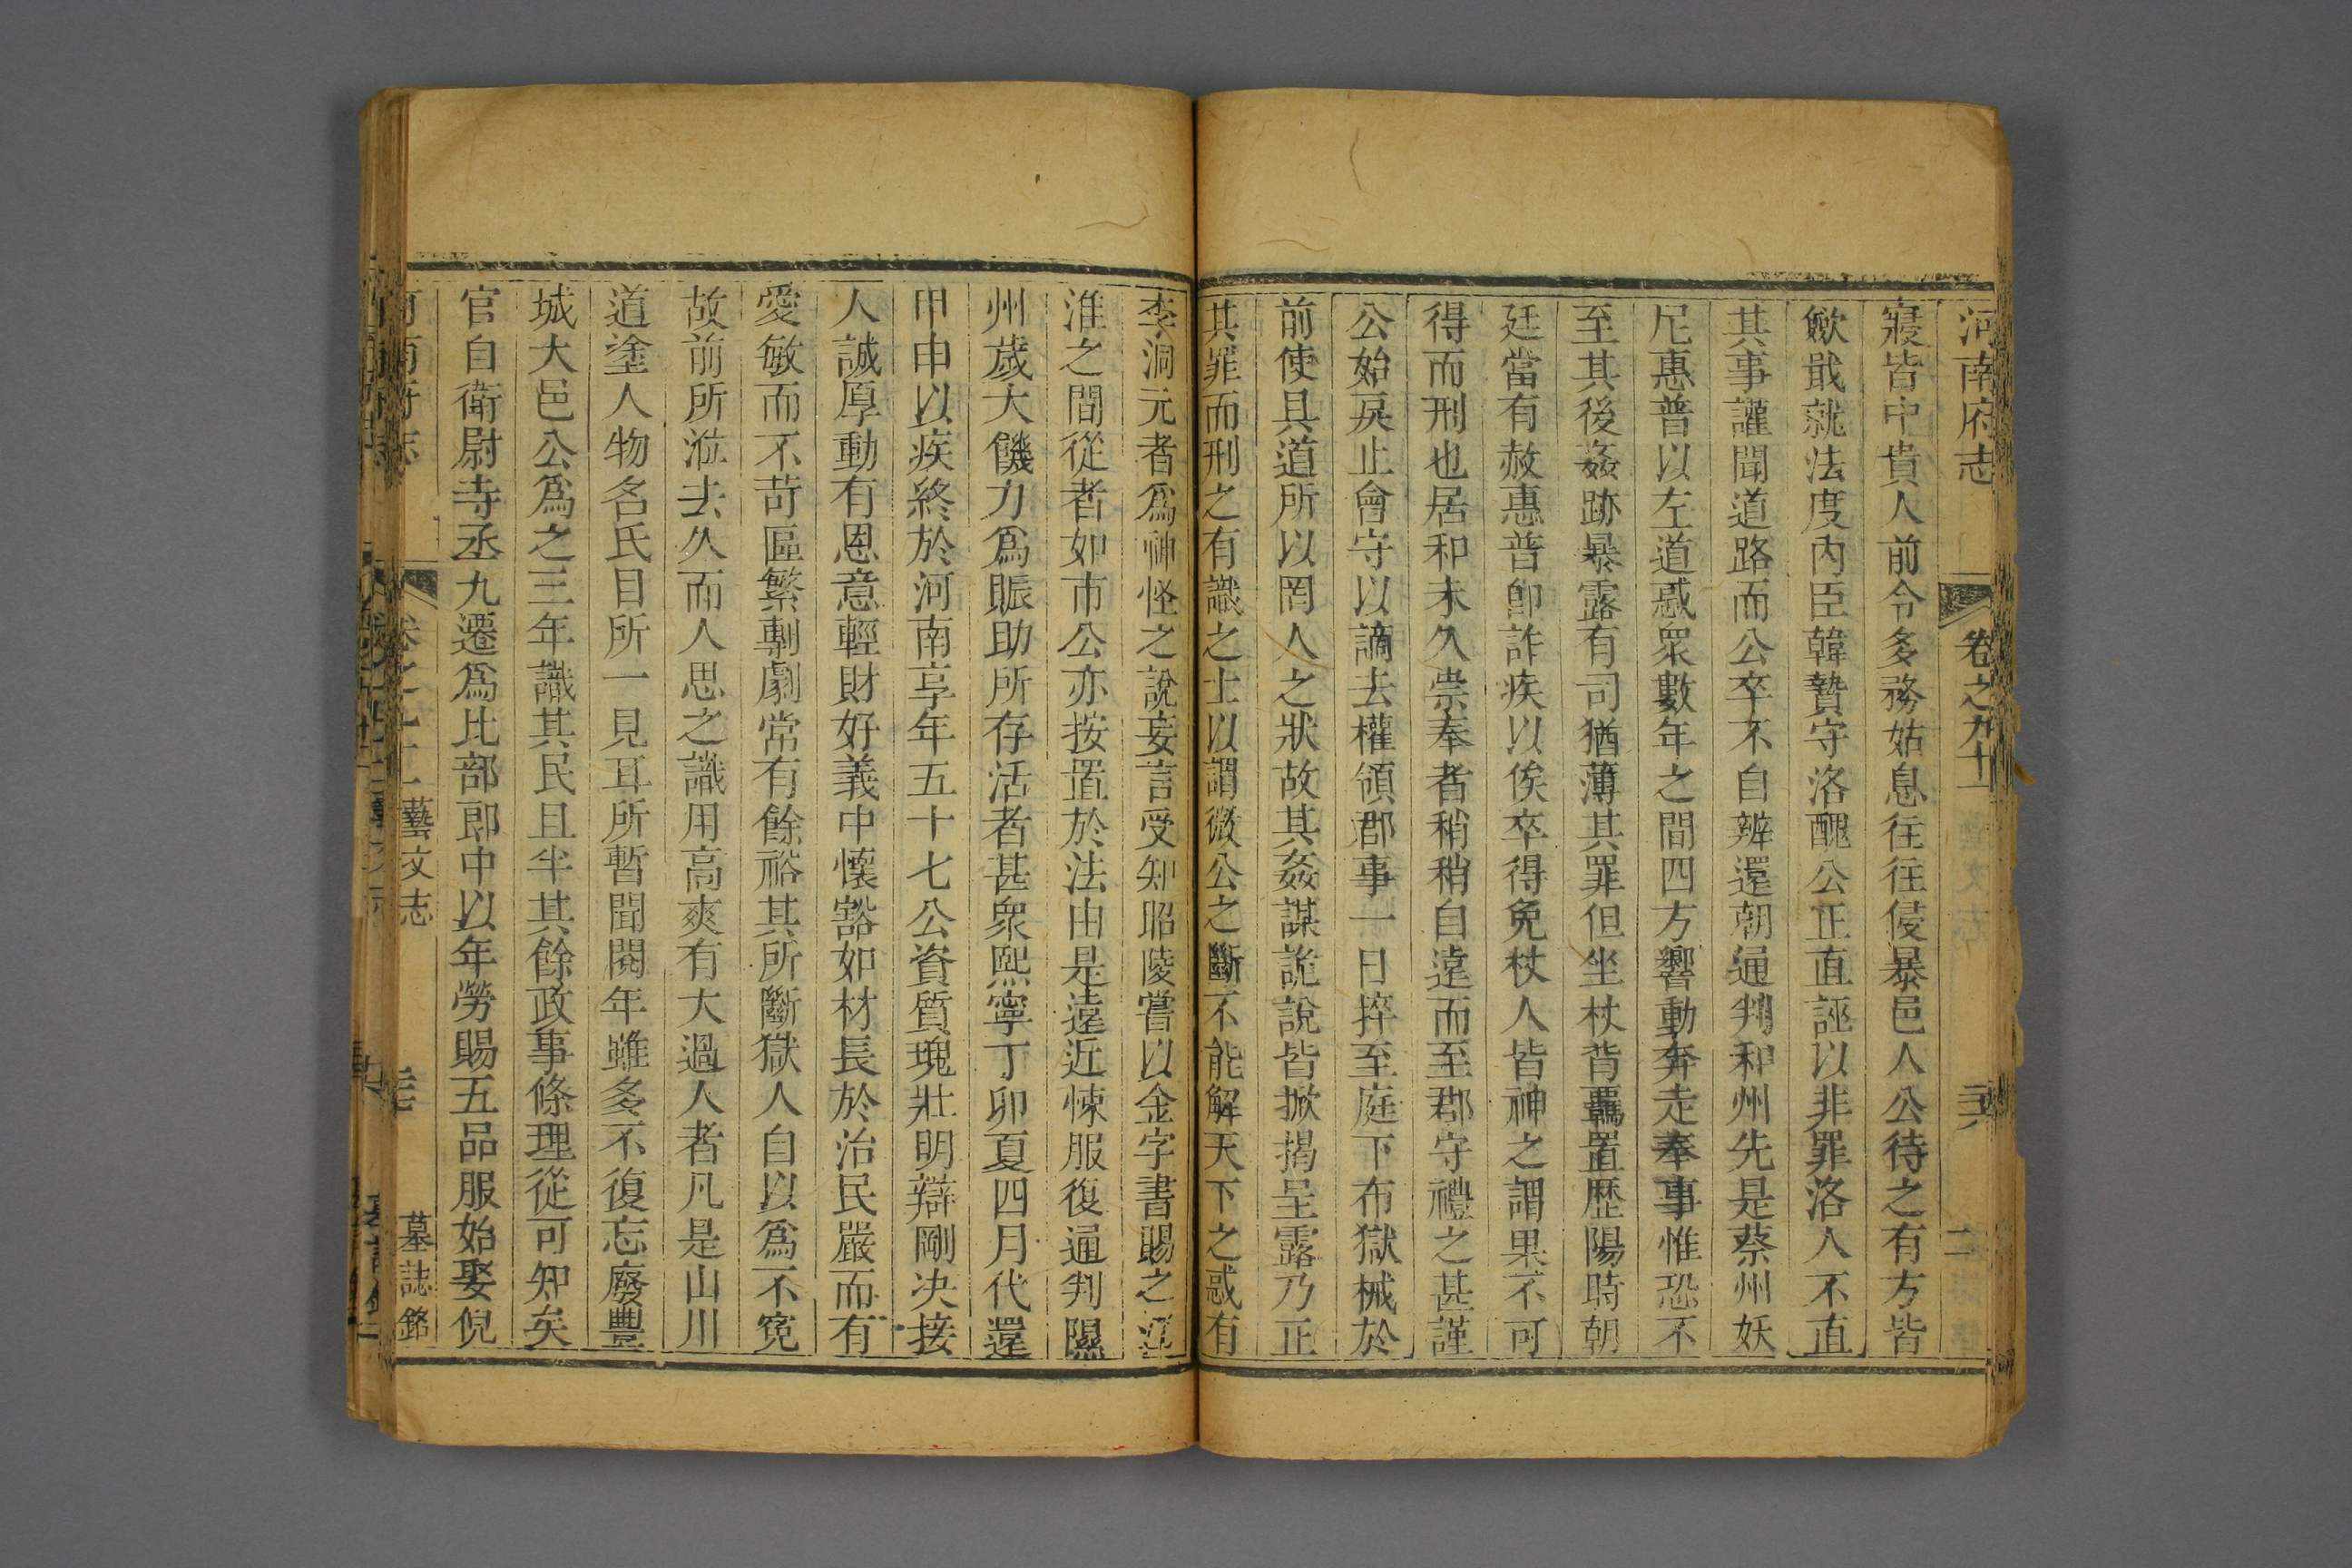 河南府志 卷之九十一
寢皆中貴人前令多務姑息往往侵暴邑人公待之有方皆
歛戢就法度內臣韓贄守洛醜公正直誣以非罪洛人不直
其事讙聞道路而公卒不自辨還朝通判和州先是蔡州妖
尼惠普以左道惑衆數年之間四方響動奔走奉事惟恐不
至其後姦跡暴露有司猶薄其罪但坐杖背覊置歷陽時朝
廷當有赦惠普卽詐疾以俟卒得免杖人皆神之謂果不可
得而刑也居和未久崇奉者稍稍自遠而至郡守禮之甚謹
公始戾止會守以謫去權領郡事一日捽至庭下布獄械於
前使具道所以罔人之狀故其姦謀詭說皆掀揭呈露乃正
其罪而刑之有識之士以謂微公之斷不能解天下之惑有
李洞元者爲神怪之說妄言受知昭陵嘗以金字書賜之江
淮之間從者如市公亦按置於法由是遠近悚服復通判隰
州歲大饑力爲賑助所存活者甚衆熙寧丁卯夏四月代還
甲申以疾終於河南享年五十七公資質瑰壯明辯剛決接
人誠厚動有恩意輕財好義中懷豁如材長於治民嚴而有
愛敏而不苛區繁剸劇常有餘裕其所斷獄人自以爲不寃
故前所涖去久而人思之識用高爽有大過人者凡是山川
道塗人物名氏目所一見耳所暫聞閱年雖多不復忘廢豐
城大邑公爲之三年識其民且半其餘政事條理從可知矣
官自衛尉寺丞九遷爲比部郎中以年勞賜五品服始娶倪
河南府志 卷之九十一 藝文志 墓誌銘